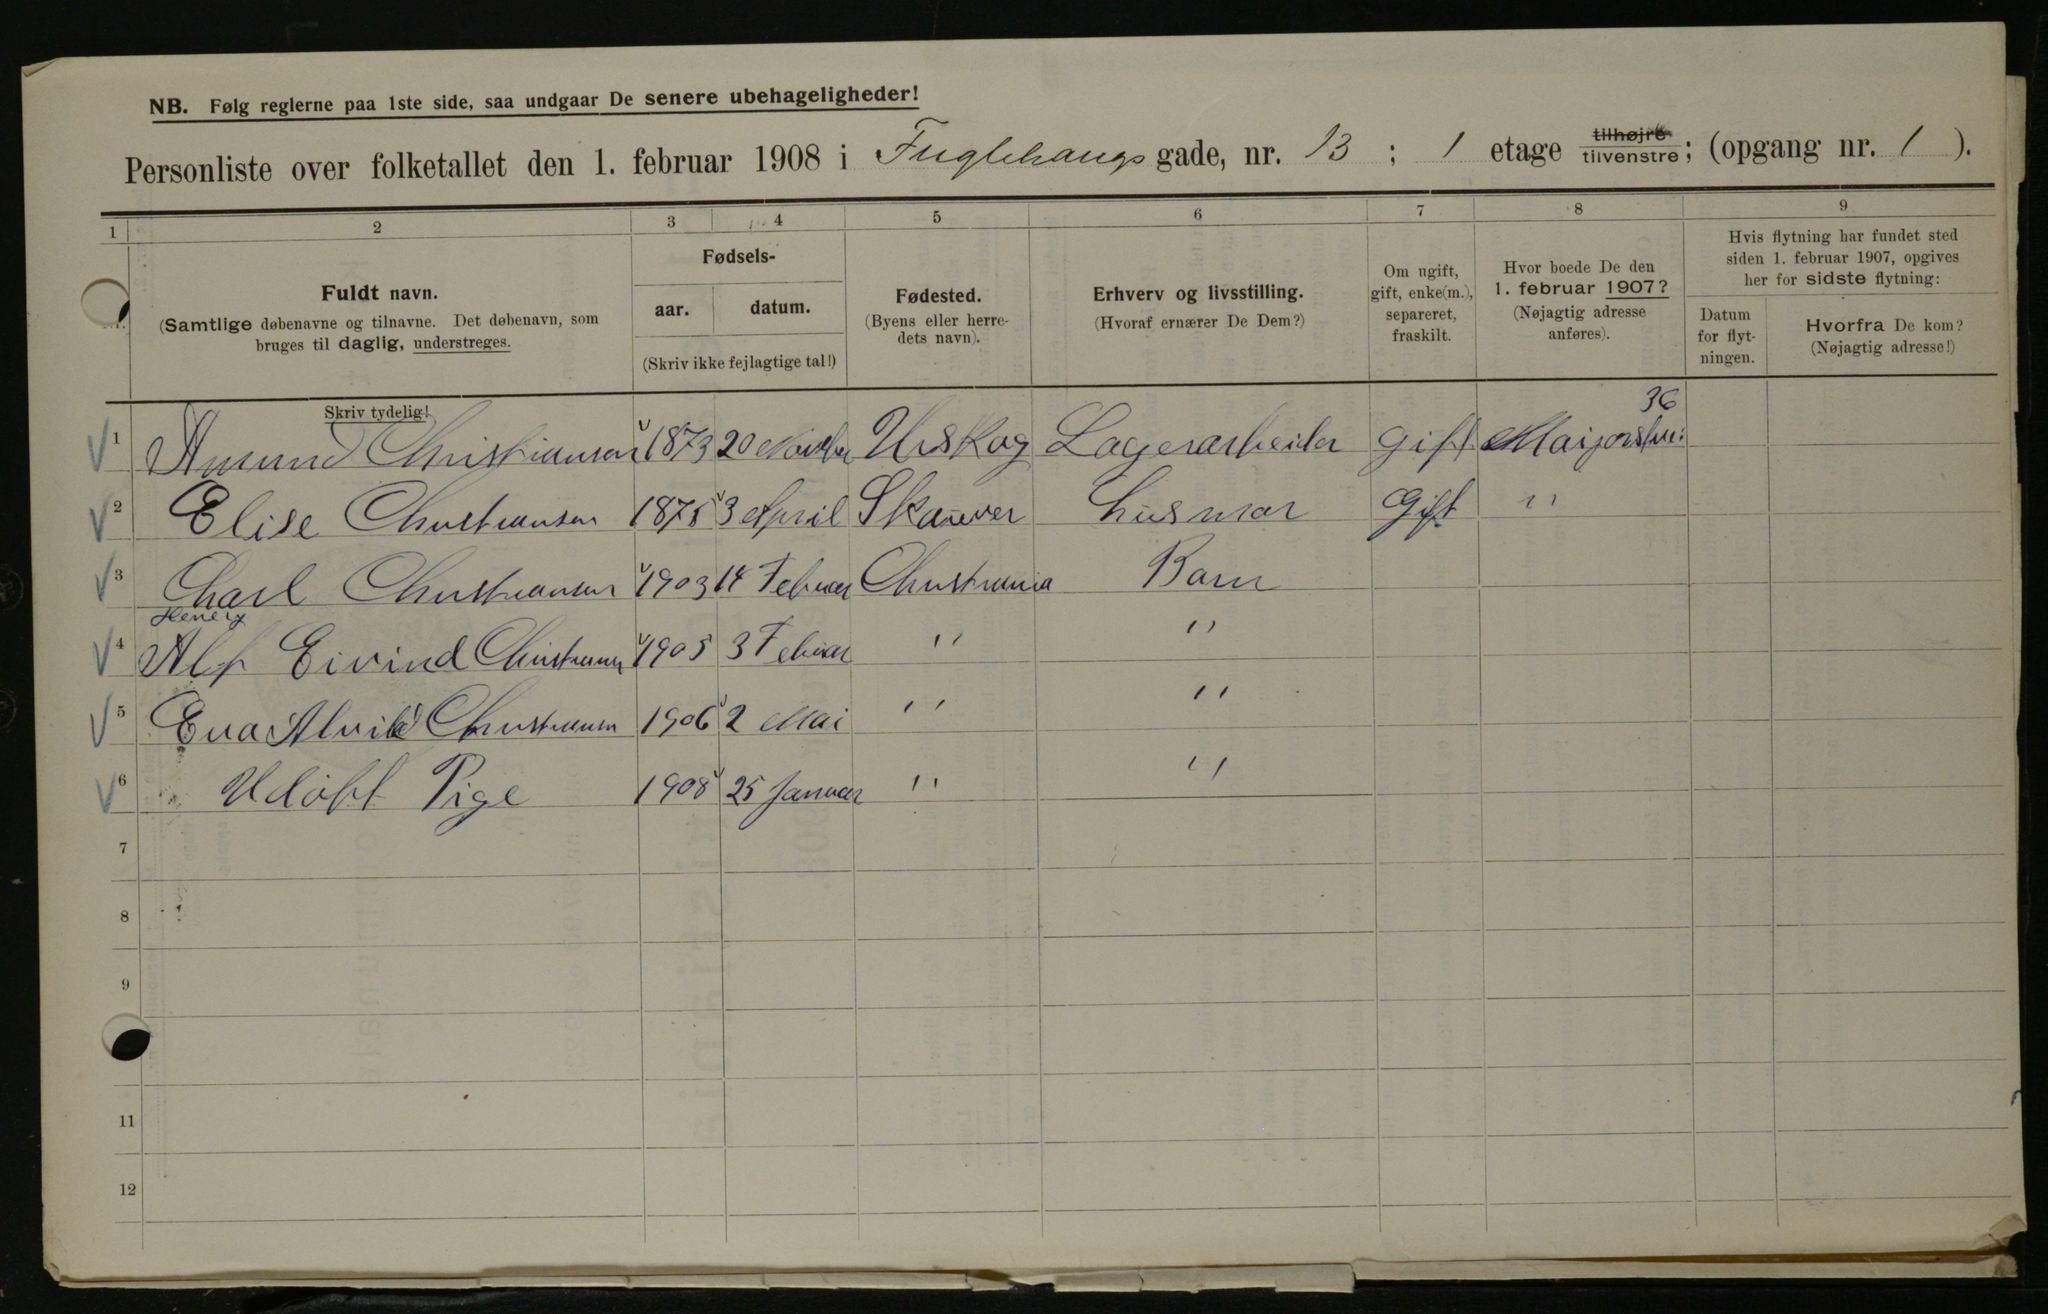 NB. Følg reglerne paa 1ste side, saa undgaar De senere ubehageligheder!
Personliste over folketallet den 1. februar 1908 i Fuglehaugs gade, nr. 13 ; 1 etage tilhøjre tilvenstre; (opgang nr. 1 ).
1 2 3 4 5 6 7 8 9
Fuldt navn.
(Samtlige døbenavne og tilnavne. Det døbenavn, som
bruges til daglig, understreges.
Fødsels-
aar. datum.
(Skriv ikke fejlagtige tal!)
Fødested.
(Byens eller herre-
dets navn).
Erhverv og livsstilling.
(Hvoraf ernærer De Dem?)
Om ugift,
gift, enke(m.),
separeret,
fraskilt.
Hvor boede De den
1. februar 1907?
(Nøjagtig adresse
anføres).
Hvis flytning har fundet sted
siden 1. februar 1907, opgives
her for sidste flytning:
Datum
for flyt-
ningen.
Hvorfra De kom?
(Nøjagtig adresse!)
Skriv tydelig!
36
1 Amund Christiansen 1873 20 Urskog Lagerarbeider Gift
2 Elise Christiansen 1875 3 April Skauver husmor Gift "
3 Charl Christiansen 1903 14 Februar Christiania Barn
Henery
4 Alf Eivind Christiansen 1905 3 Februar " "
5 Eva Alvild Christiansen 1906 2 Mai " "
6 Udöbt Pige 1908 25 Januar " "
7
8
9
11
12